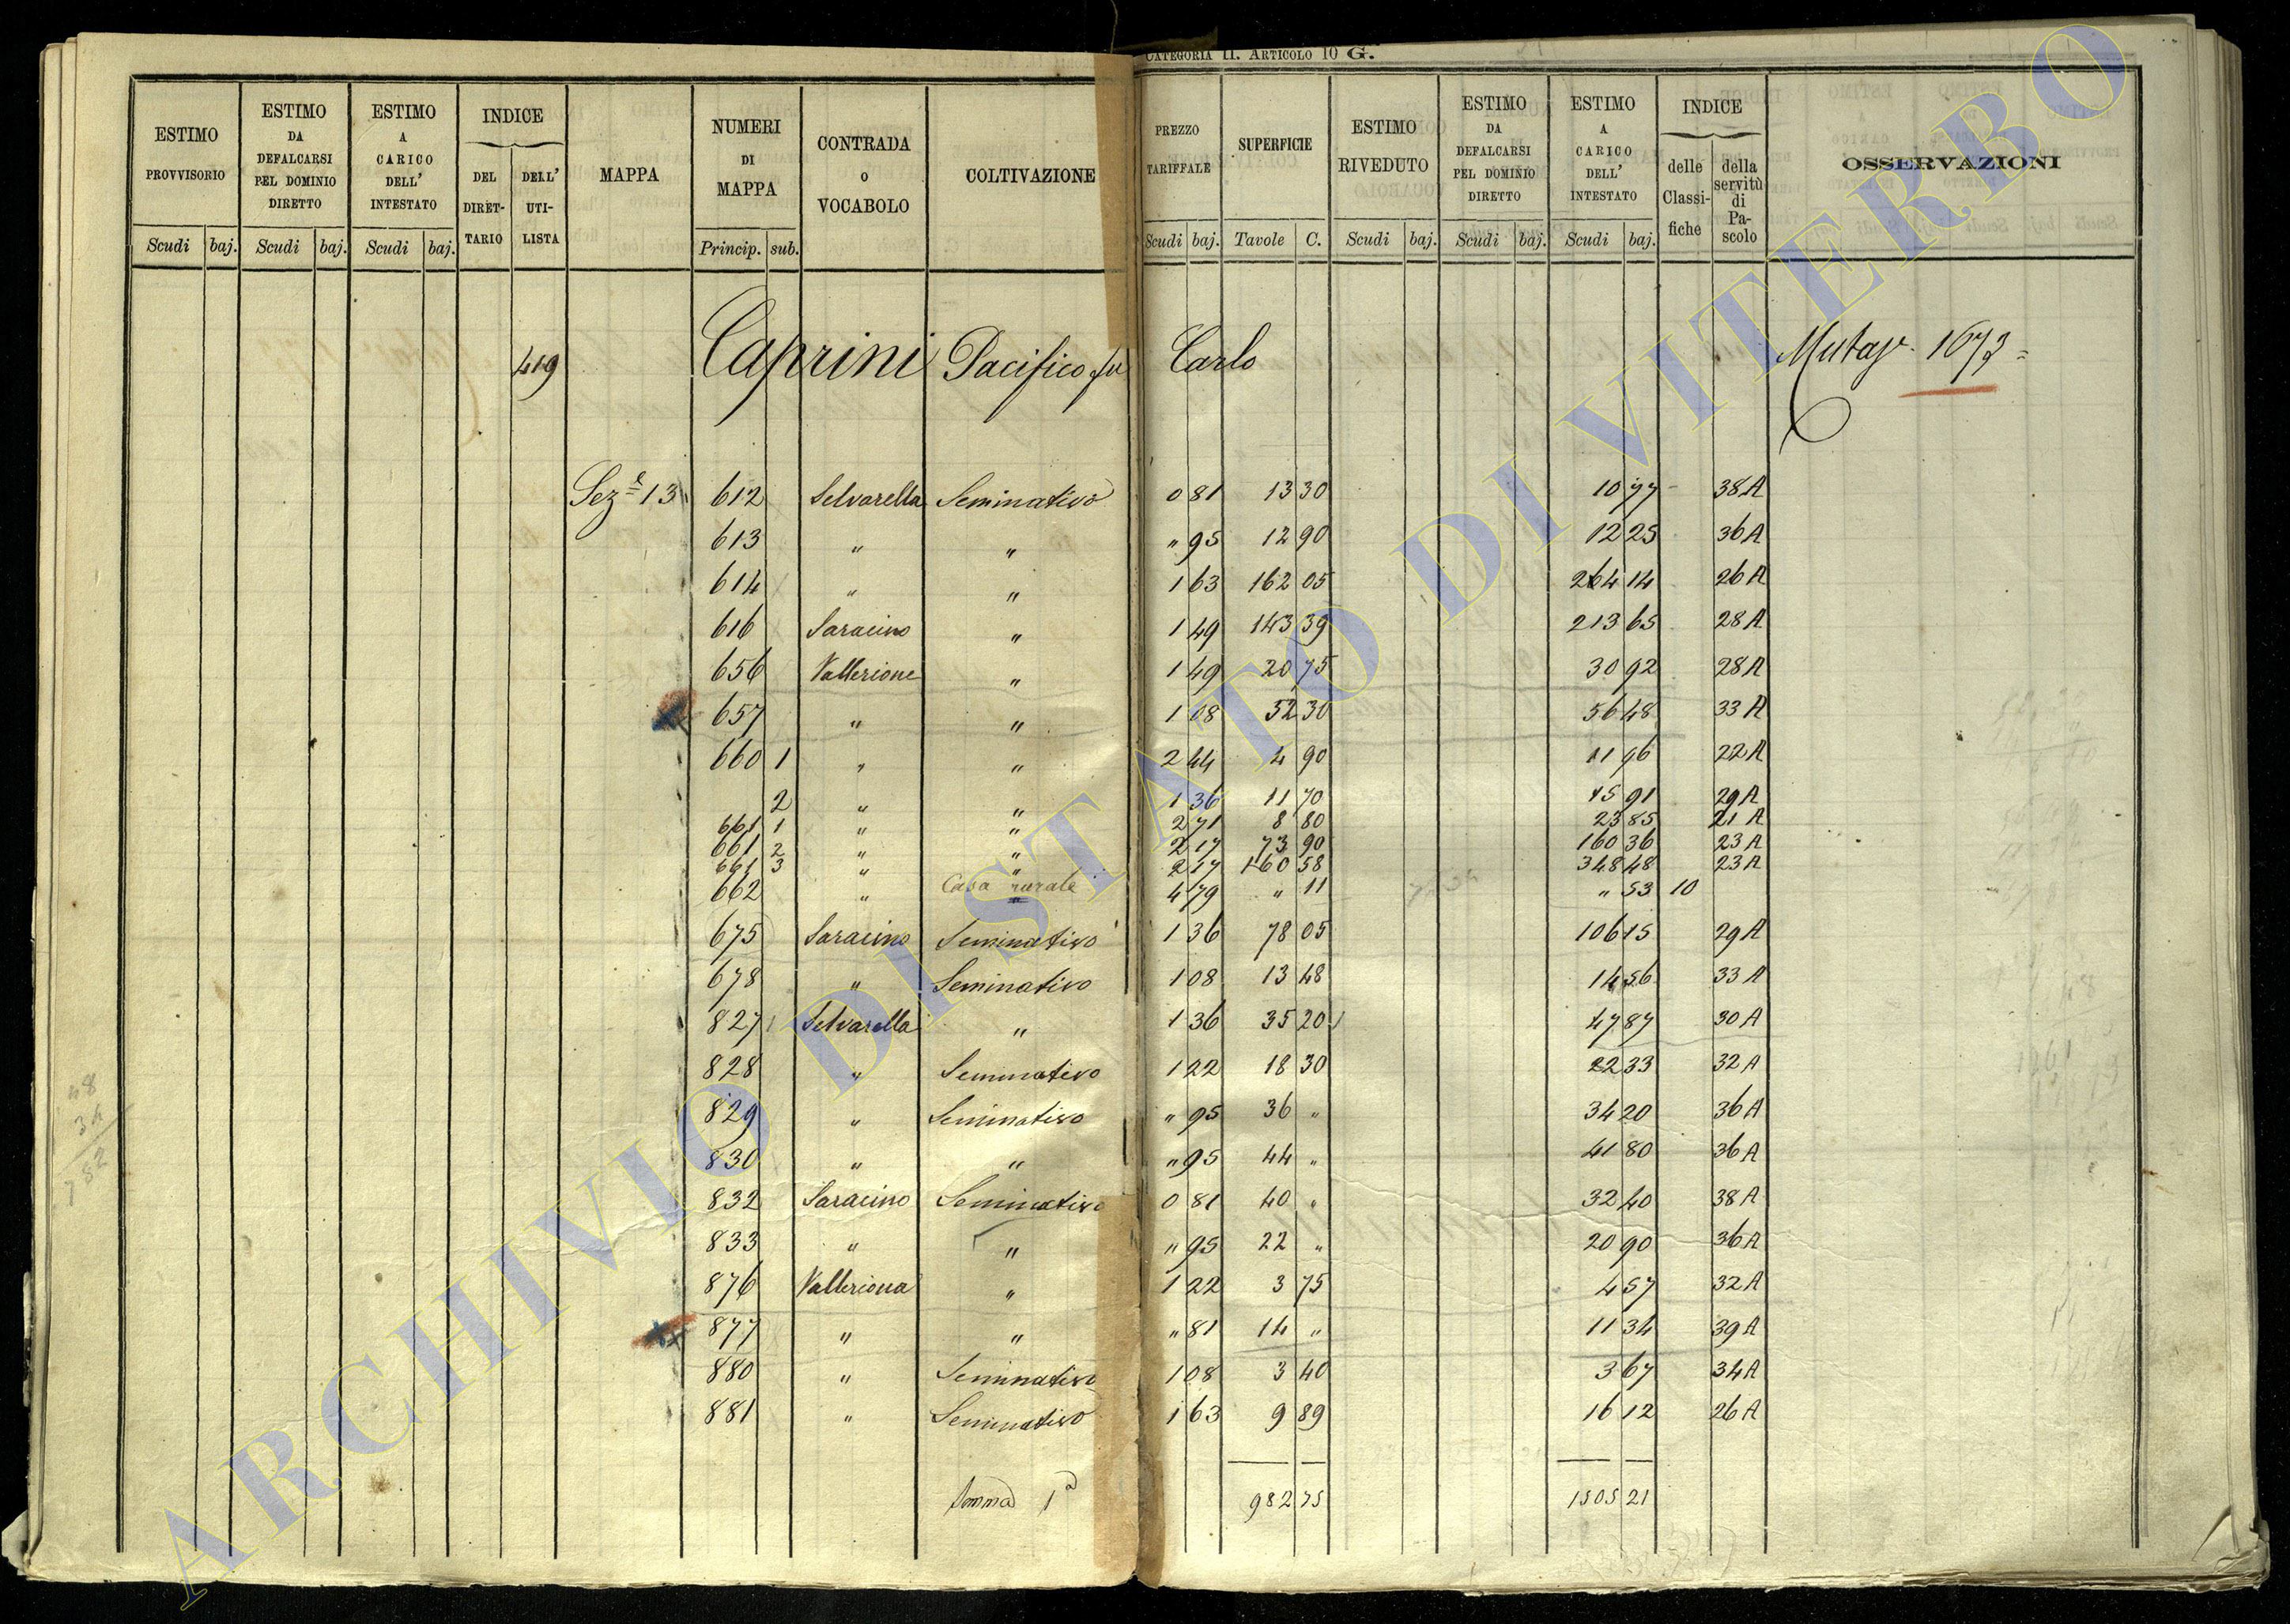 CATEGORIA II. ARTICOLO 10 G.
ESTIMO PROVVISORIO
ESTIMO DA DEFALCARSI PEL DOMINIO DIRETTO
ESTIMO A CARICO DELL' INTESTATO
INDICE
DEL DIRET-TARIO
DELL' UTI-LISTA
MAPPA
NUMERI DI MAPPA
CONTRADA o VOCABOLO
COLTIVAZIONE
PREZZO TARIFFALE
SUPERFICIE
ESTIMO RIVEDUTO
ESTIMO DA DEFALCARSI PEL DOMINIO DIRETTO
ESTIMO A CARICO DELL' INTESTATO
INDICE
delle Classi-fiche
della servitù di Pa-scolo
OSSERVAZIONI
Scudi baj. Scudi baj. Scudi baj. Princip. sub. Scudi baj. Tavole C. Scudi baj. Scudi baj. Scudi baj.
419 Caprini Pacifico fu Carlo 1673
Sez.e 13 612 Selvarella Seminativo 0 81 13 30 10 77 38A
613 " " " 95 12 90 12 25 36A
614 " " 1 63 162 05 264 14 26A
616 Saracino " 1 49 143 39 213 65 28A
656 Vallerione " 1 49 20 75 30 92 28A
657 " " 1 08 52 30 56 48 33A
660 1 " " 2 44 4 90 11 96 22A
2 " " 1 36 11 70 15 91 29A
661 1 " " 2 71 8 80 23 85 21A
661 2 " " 2 17 73 90 160 36 23A
661 3 " " 2 17 160 58 348 48 23A
662 " Casa rurale 4 79 " 11 " 53 10
675 Saracino Seminativo 1 36 78 05 106 15 29A
678 " Seminativo 1 08 13 48 14 56 33A
827 Selvarella " 1 36 35 20 47 87 30A
828 " Seminativo 1 22 18 30 22 33 32A
829 " Seminativo " 95 36 " 34 20 36A
830 " " " 95 44 " 41 80 36A
832 Saracino Seminativo 0 81 40 " 32 40 38A
833 " " " 95 22 " 20 90 36A
876 Valleriona " 1 22 3 75 4 57 32A
877 " " " 81 14 " 11 34 39A
880 " Seminativo 1 08 3 40 3 67 34A
881 " Seminativo 1 63 9 89 16 12 26A
Somma 1a 982 75 1505 21
48
34
782
ARCHIVIO DI STATO DI VITERBO